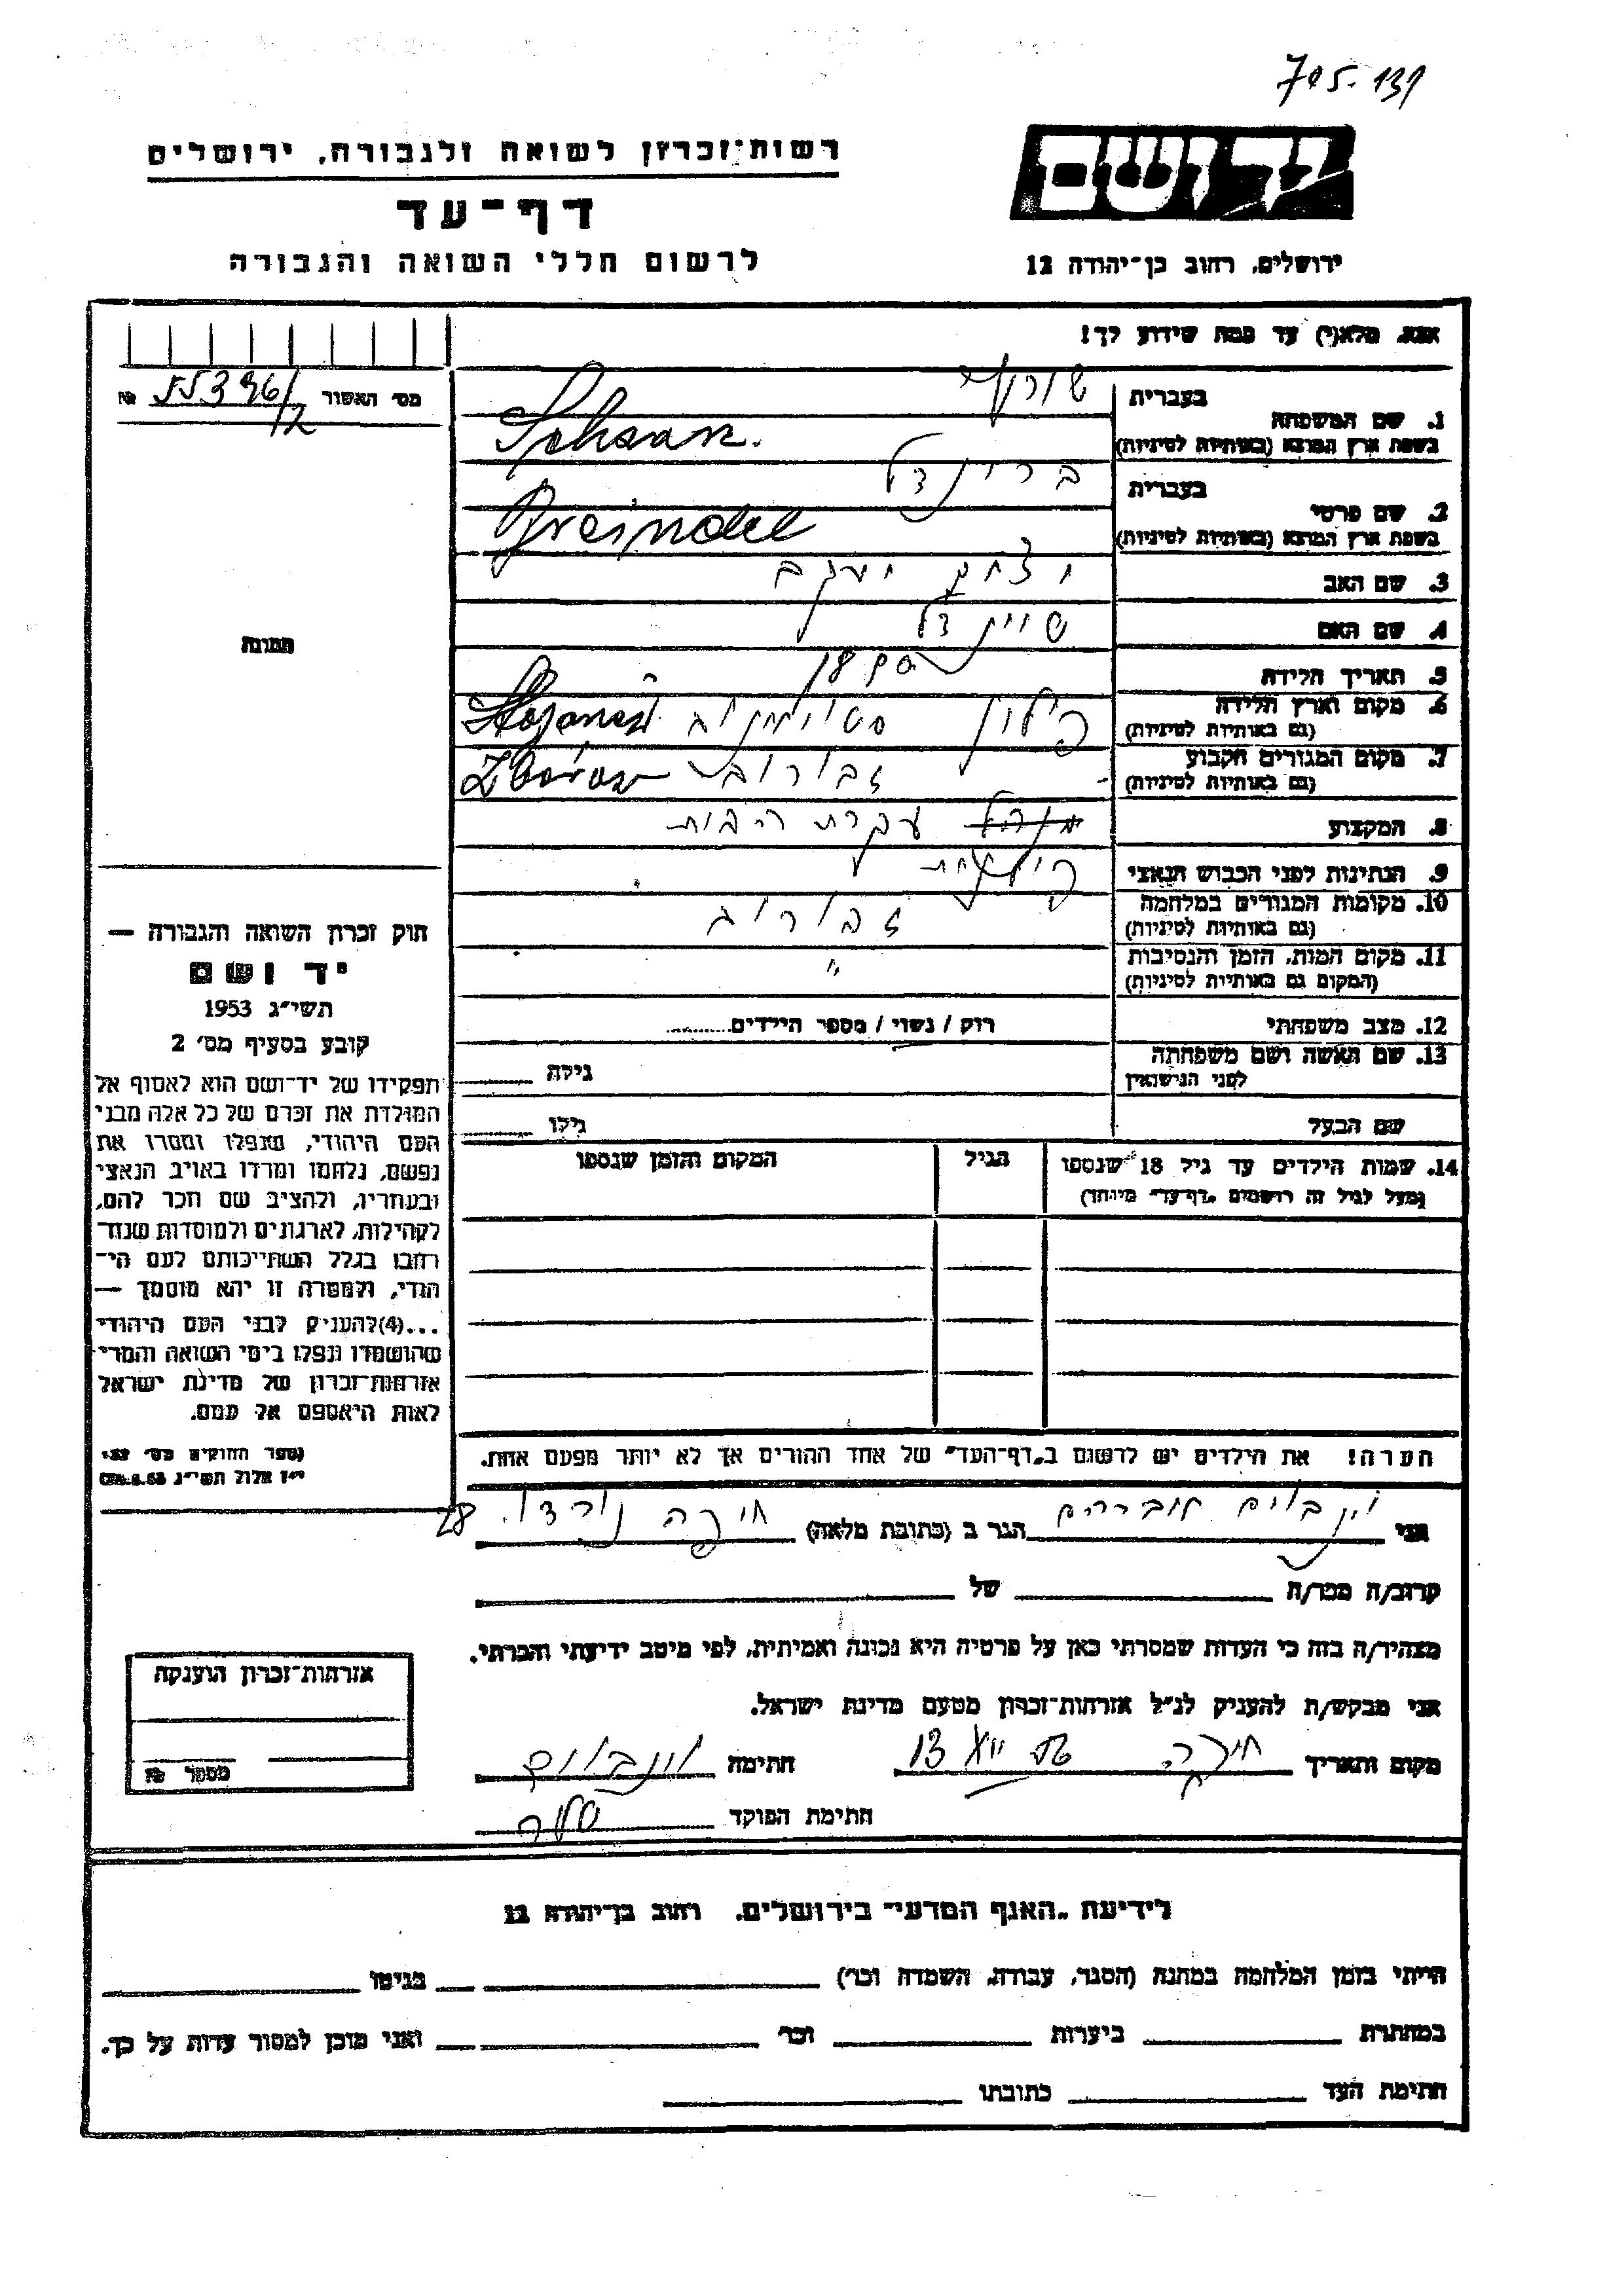 705-139
רשות־זכרון לשואה ולגבורה, ירושלים
דף־עד
לרשום חללי השואה והגבורה
יד ושם
ירושלים, רחוב בן־יהודה 12
אנא, מלא(י) עד כמה שידוע לך!
מס׳ האשור 55396/12 №
תמונה
1. שם המשפחה
בעברית
בשפת ארץ המוצא (באותיות לטיניות)
2. שם פרטי
בעברית ברינדל
בשפת ארץ המוצא (באותיות לטיניות) Breindel
3. שם האב יצחק יעקב
4. שם האם שיינדל
5. תאריך הלידה
6. מקום וארץ הלידה פולין סטויאנוב
(גם באותיות לטיניות)
7. מקום המגורים הקבוע זבורוב
(גם באותיות לטיניות)
8. המקצוע עקרת הבית
9. הנתינות לפני הכבוש הנאצי פולנית
10. מקומות המגורים במלחמה זבורוב
(גם באותיות לטיניות)
11. מקום המות, הזמן והנסיבות "
(המקום גם באותיות לטיניות)
12. מצב משפחתי רוק / נשוי / מספר הילדים
13. שם האשה ושם משפחתה
לפני הנישואין גילה
שם הבעל גילו
14. שמות הילדים עד גיל 18 שנספו הגיל המקום והזמן שנספו
(מעל לגיל זה רושמים „דף־עד" מיוחד)
הערה! את הילדים יש לרשום ב„דף־העד" של אחד ההורים אך לא יותר מפעם אחת.
חוק זכרון השואה והגבורה —
יד ושם
תשי״ג 1953
קובע בסעיף מס׳ 2
תפקידו של יד־ושם הוא לאסוף אל
המולדת את זכרם של כל אלה מבני
העם היהודי, שנפלו ומסרו את
נפשם, נלחמו ומרדו באויב הנאצי
ובעוזריו, ולהציב שם וזכר להם,
לקהילות, לארגונים ולמוסדות שנח־
רבו בגלל השתייכותם לעם הי־
הודי, ולמטרה זו יהא מוסמך —
...(4) להעניק לבני העם היהודי
שהושמדו ונפלו בימי השואה והמרי
אזרחות־זכרון של מדינת ישראל
לאות היאספם אל עמם.
(ספר החוקים מס׳ 132
י״ז אלול תשי״ג 28.8.53)
אני וינבוים אברהם הגר ב (כתובת מלאה) חיפה נורדוי 28
קרוב/ה מכר/ה של
מצהיר/ה בזה כי העדות שמסרתי כאן על פרטיה היא נכונה ואמיתית, לפי מיטב ידיעתי והכרתי.
אני מבקש/ת להעניק לנ״ל אזרחות־זכרון מטעם מדינת ישראל.
מקום ותאריך חיפה חתימה וינבוים
חתימת הפוקד
אזרחות־זכרון הוענקה
מספר №
לידיעת „האגף המדעי" בירושלים, רחוב בן־יהודה 12
הייתי בזמן המלחמה במחנה (הסגר, עבודה, השמדה וכו׳) בגיטו
במחתרת ביערות וכו׳ ואני מוכן למסור עדות על כך.
חתימת העד כתובתו